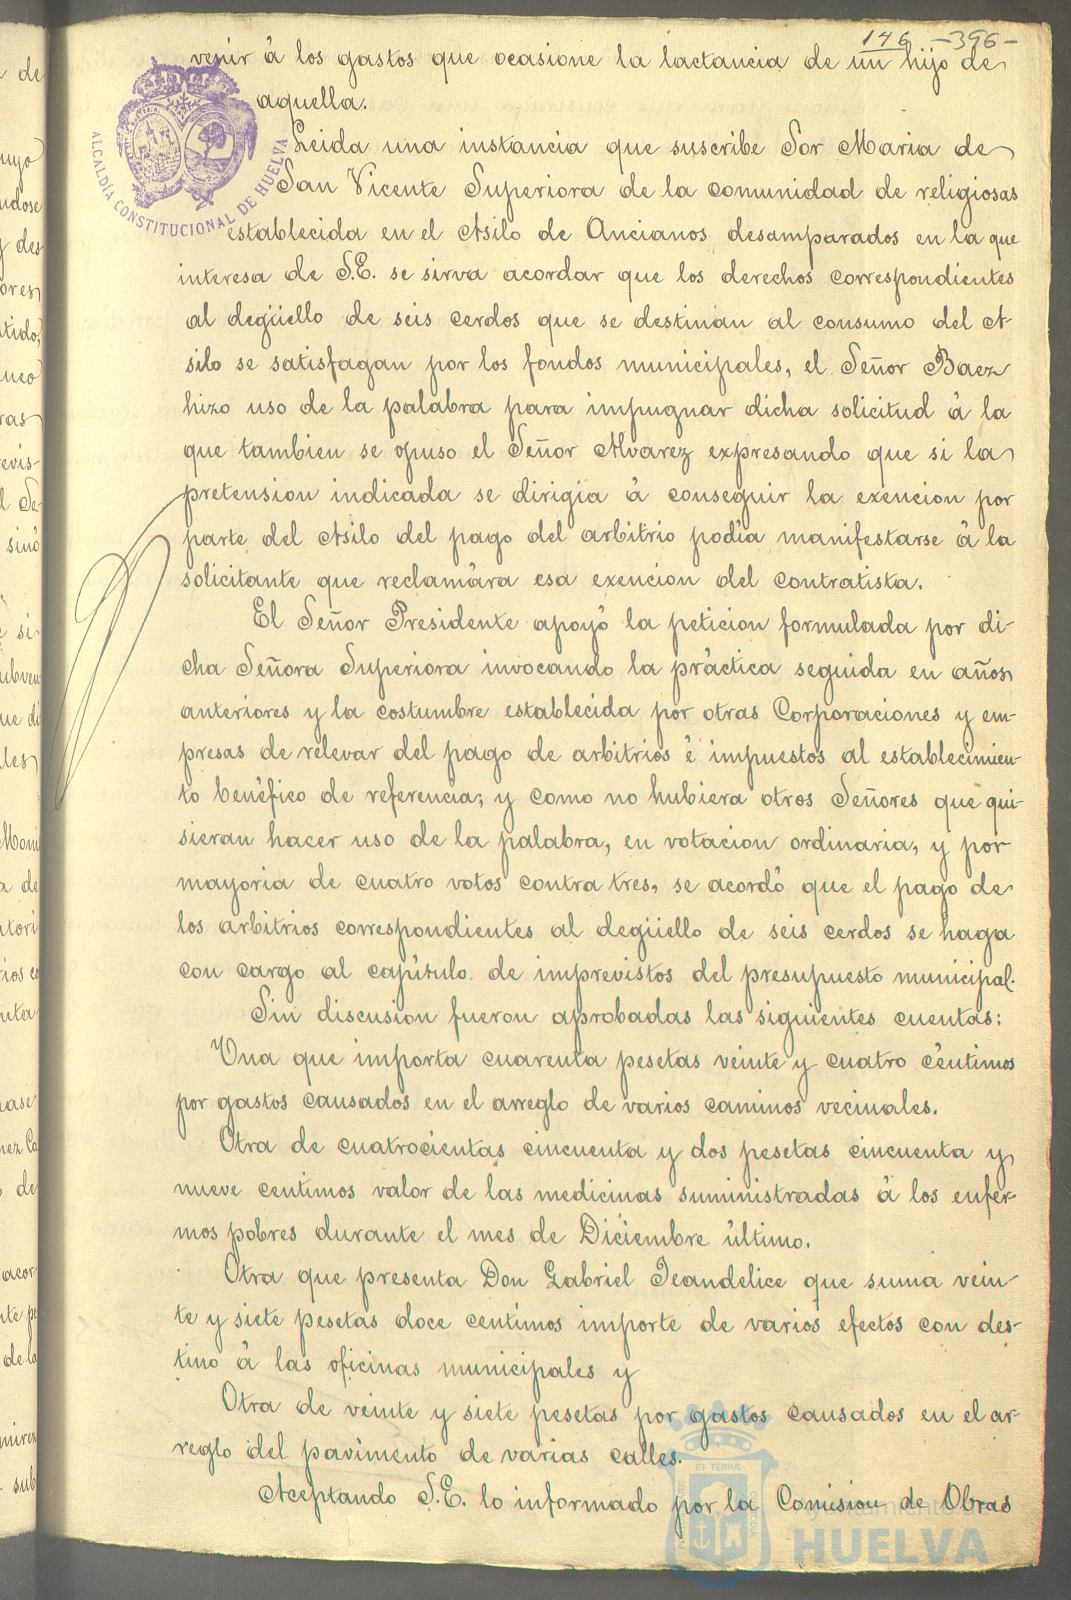 146 -396-
venir à los gastos que ocasione la lactancia de un hijo de
aquella.
Leida una instancia que suscribe Sor Maria de
San Vicente Superiora de la comunidad de religiosas
establecida en el Asilo de Ancianos desamparados en la que
interesa de S.E. se sirva acordar que los derechos correspondientes
al degüello de seis cerdos que se destinan al consumo del A-
silo se satisfagan por los fondos municipales, el Señor Baez
hizo uso de la palabra para impugnar dicha solicitud à la
que tambien se opuso el Señor Alvarez expresando que si la
pretension indicada se dirigia à conseguir la exencion por
parte del Asilo del pago del arbitrio podia manifestarse à la
solicitante que reclamára esa exencion del contratista.
El Señor Presidente apoyó la peticion formulada por di-
cha Señora Superiora invocando la pràctica seguida en años
anteriores y la costumbre establecida por otras Corporaciones y em-
presas de relevar del pago de arbitrios è impuestos al establecimien-
to benéfico de referencia; y como no hubiera otros Señores que qui-
sieran hacer uso de la palabra, en votacion ordinaria, y por
mayoria de cuatro votos contra tres, se acordó que el pago de
los arbitrios correspondientes al degüello de seis cerdos se haga
con cargo al capítulo de imprevistos del presupuesto municipal.
Sin discusion fueron aprobadas las siguientes cuentas:
Una que importa cuarenta pesetas veinte y cuatro céntimos
por gastos causados en el arreglo de varios caminos vecinales.
Otra de cuatrocientas cincuenta y dos pesetas cincuenta y
nueve centimos valor de las medicinas suministradas à los enfer-
mos pobres durante el mes de Diciembre último.
Otra que presenta Don Gabriel Jeandelice que suma vein-
te y siete pesetas doce centimos importe de varios efectos con des-
tino à las oficinas municipales y
Otra de veinte y siete pesetas por gastos causados en el ar-
reglo del pavimento de varias calles.
Aceptando S.E. lo informado por la Comision de Obras
ALCALDÍA CONSTITUCIONAL DE HUELVA
Ayuntamiento de
HUELVA